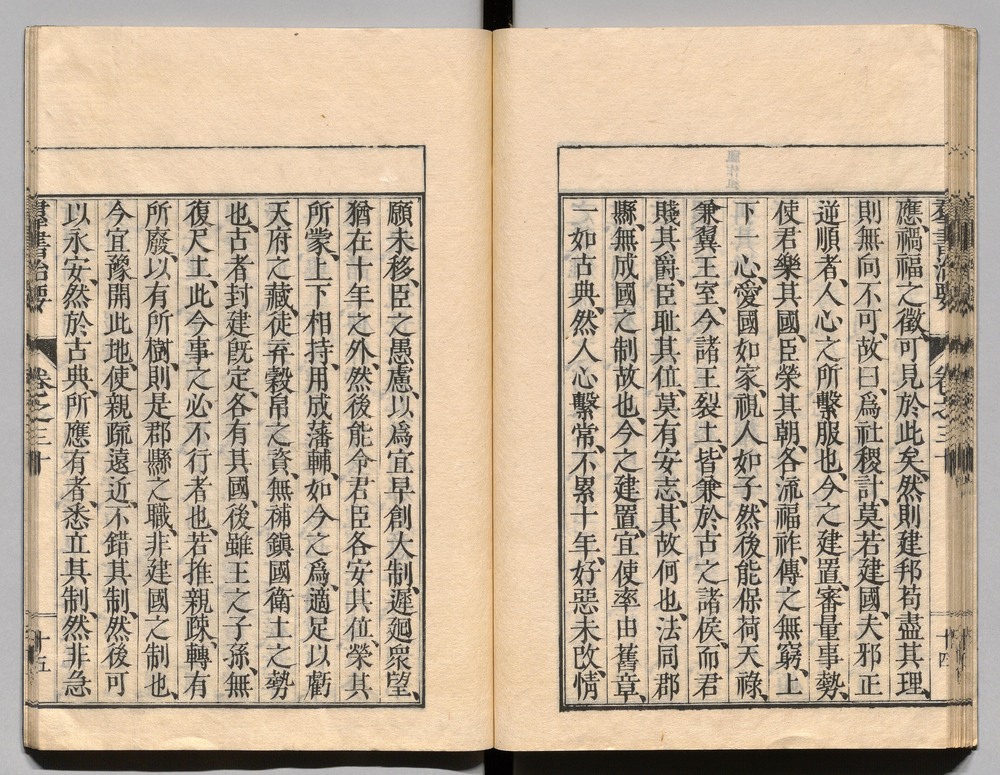 羣書治要 卷之三十 十四
應、禍福之徵、可見於此矣、然則建邦苟盡其理、
則無向不可、故曰、爲社稷計、莫若建國、夫邪正
逆順者、人心之所繫服也、今之建置、審量事勢、
使君樂其國、臣榮其朝、各流福祚、傳之無窮、上
下一心、愛國如家、視人如子、然後能保荷天祿、
兼翼王室、今諸王裂土、皆兼於古之諸侯、而君
賤其爵、臣耻其位、莫有安志、其故何也、法同郡
縣、無成國之制故也、今之建置、宜使率由舊章、
一如古典、然人心繫常、不累十年、好惡未改、情
願未移、臣之愚慮、以爲宜早創大制、遲廻衆望、
猶在十年之外、然後能令君臣各安其位、榮其
所蒙、上下相持、用成藩輔、如今之爲、適足以虧
天府之藏、徒弃穀帛之資、無補鎭國衛土之勢
也、古者封建旣定、各有其國、後雖王之子孫、無
復尺土、此今事之必不行者也、若推親疎、轉有
所廢、以有所樹、則是郡縣之職、非建國之制也、
今宜豫開此地、使親疏遠近、不錯其制、然後可
以永安、然於古典、所應有者、悉立其制、然非急
羣書治要 卷之三十 十五